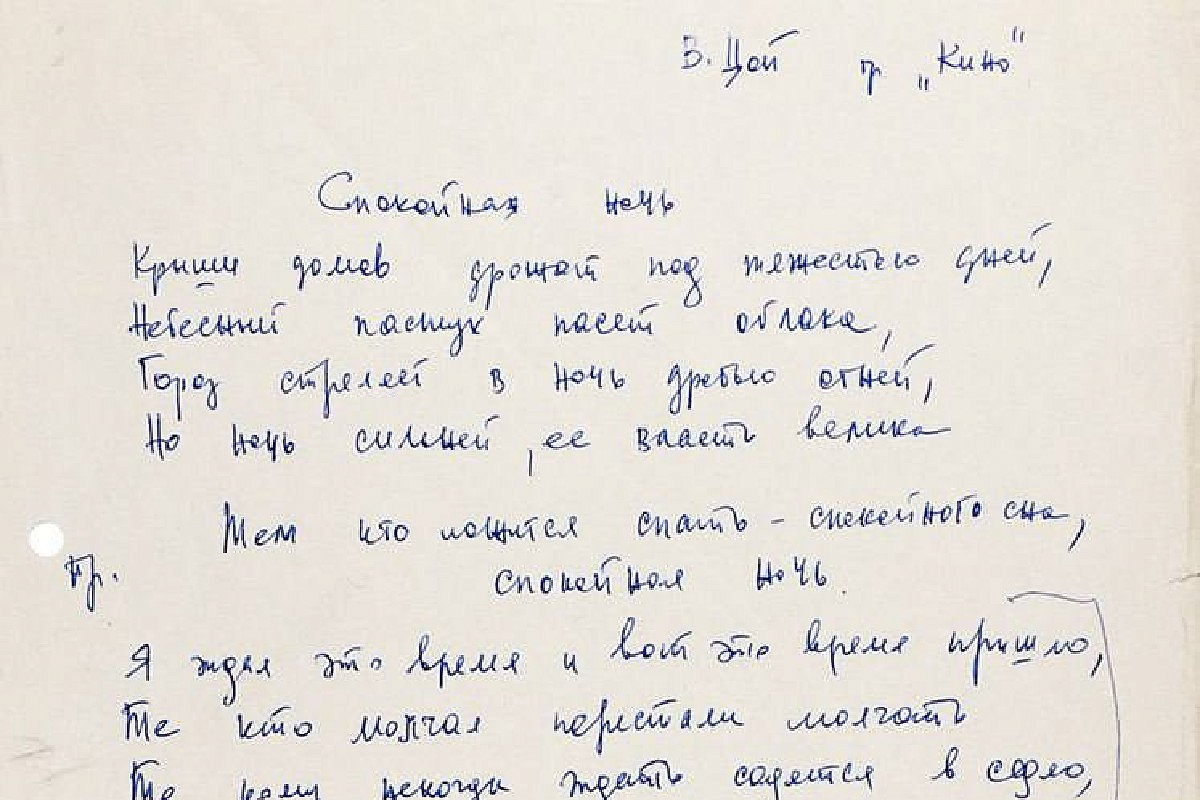 В. Цой гр „Кино"
Спокойная ночь
Крыши домов дрожат под тяжестью дней,
Небесный пастух пасет облака,
Город стреляет в ночь дробью огней,
Но ночь сильней, ее власть велика
Тем кто ложится спать - спокойного сна,
Пр. спокойная ночь.
Я ждал это время и вот это время пришло,
Те кто молчал перестали молчать
Те кому некогда ждать садятся в седло,